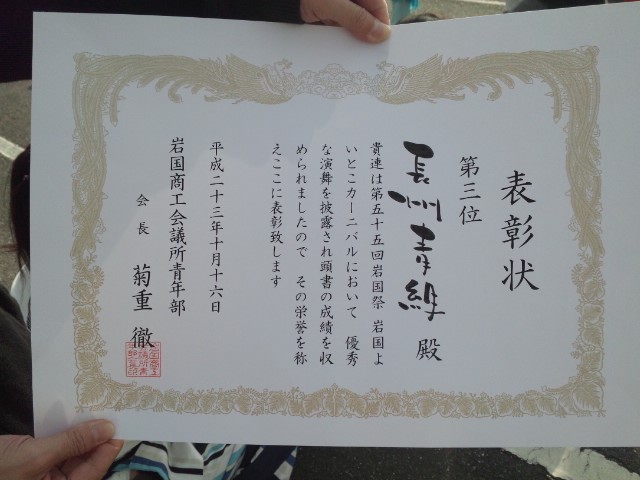 表彰状
第三位
長州青組 殿
貴連は第五十五回岩国祭 岩国よ
いとこカーニバルにおいて 優秀
な演舞を披露され頭書の成績を収
められましたので その栄誉を称
えここに表彰致します
平成二十三年十月十六日
岩国商工会議所青年部
会長 菊重 徹